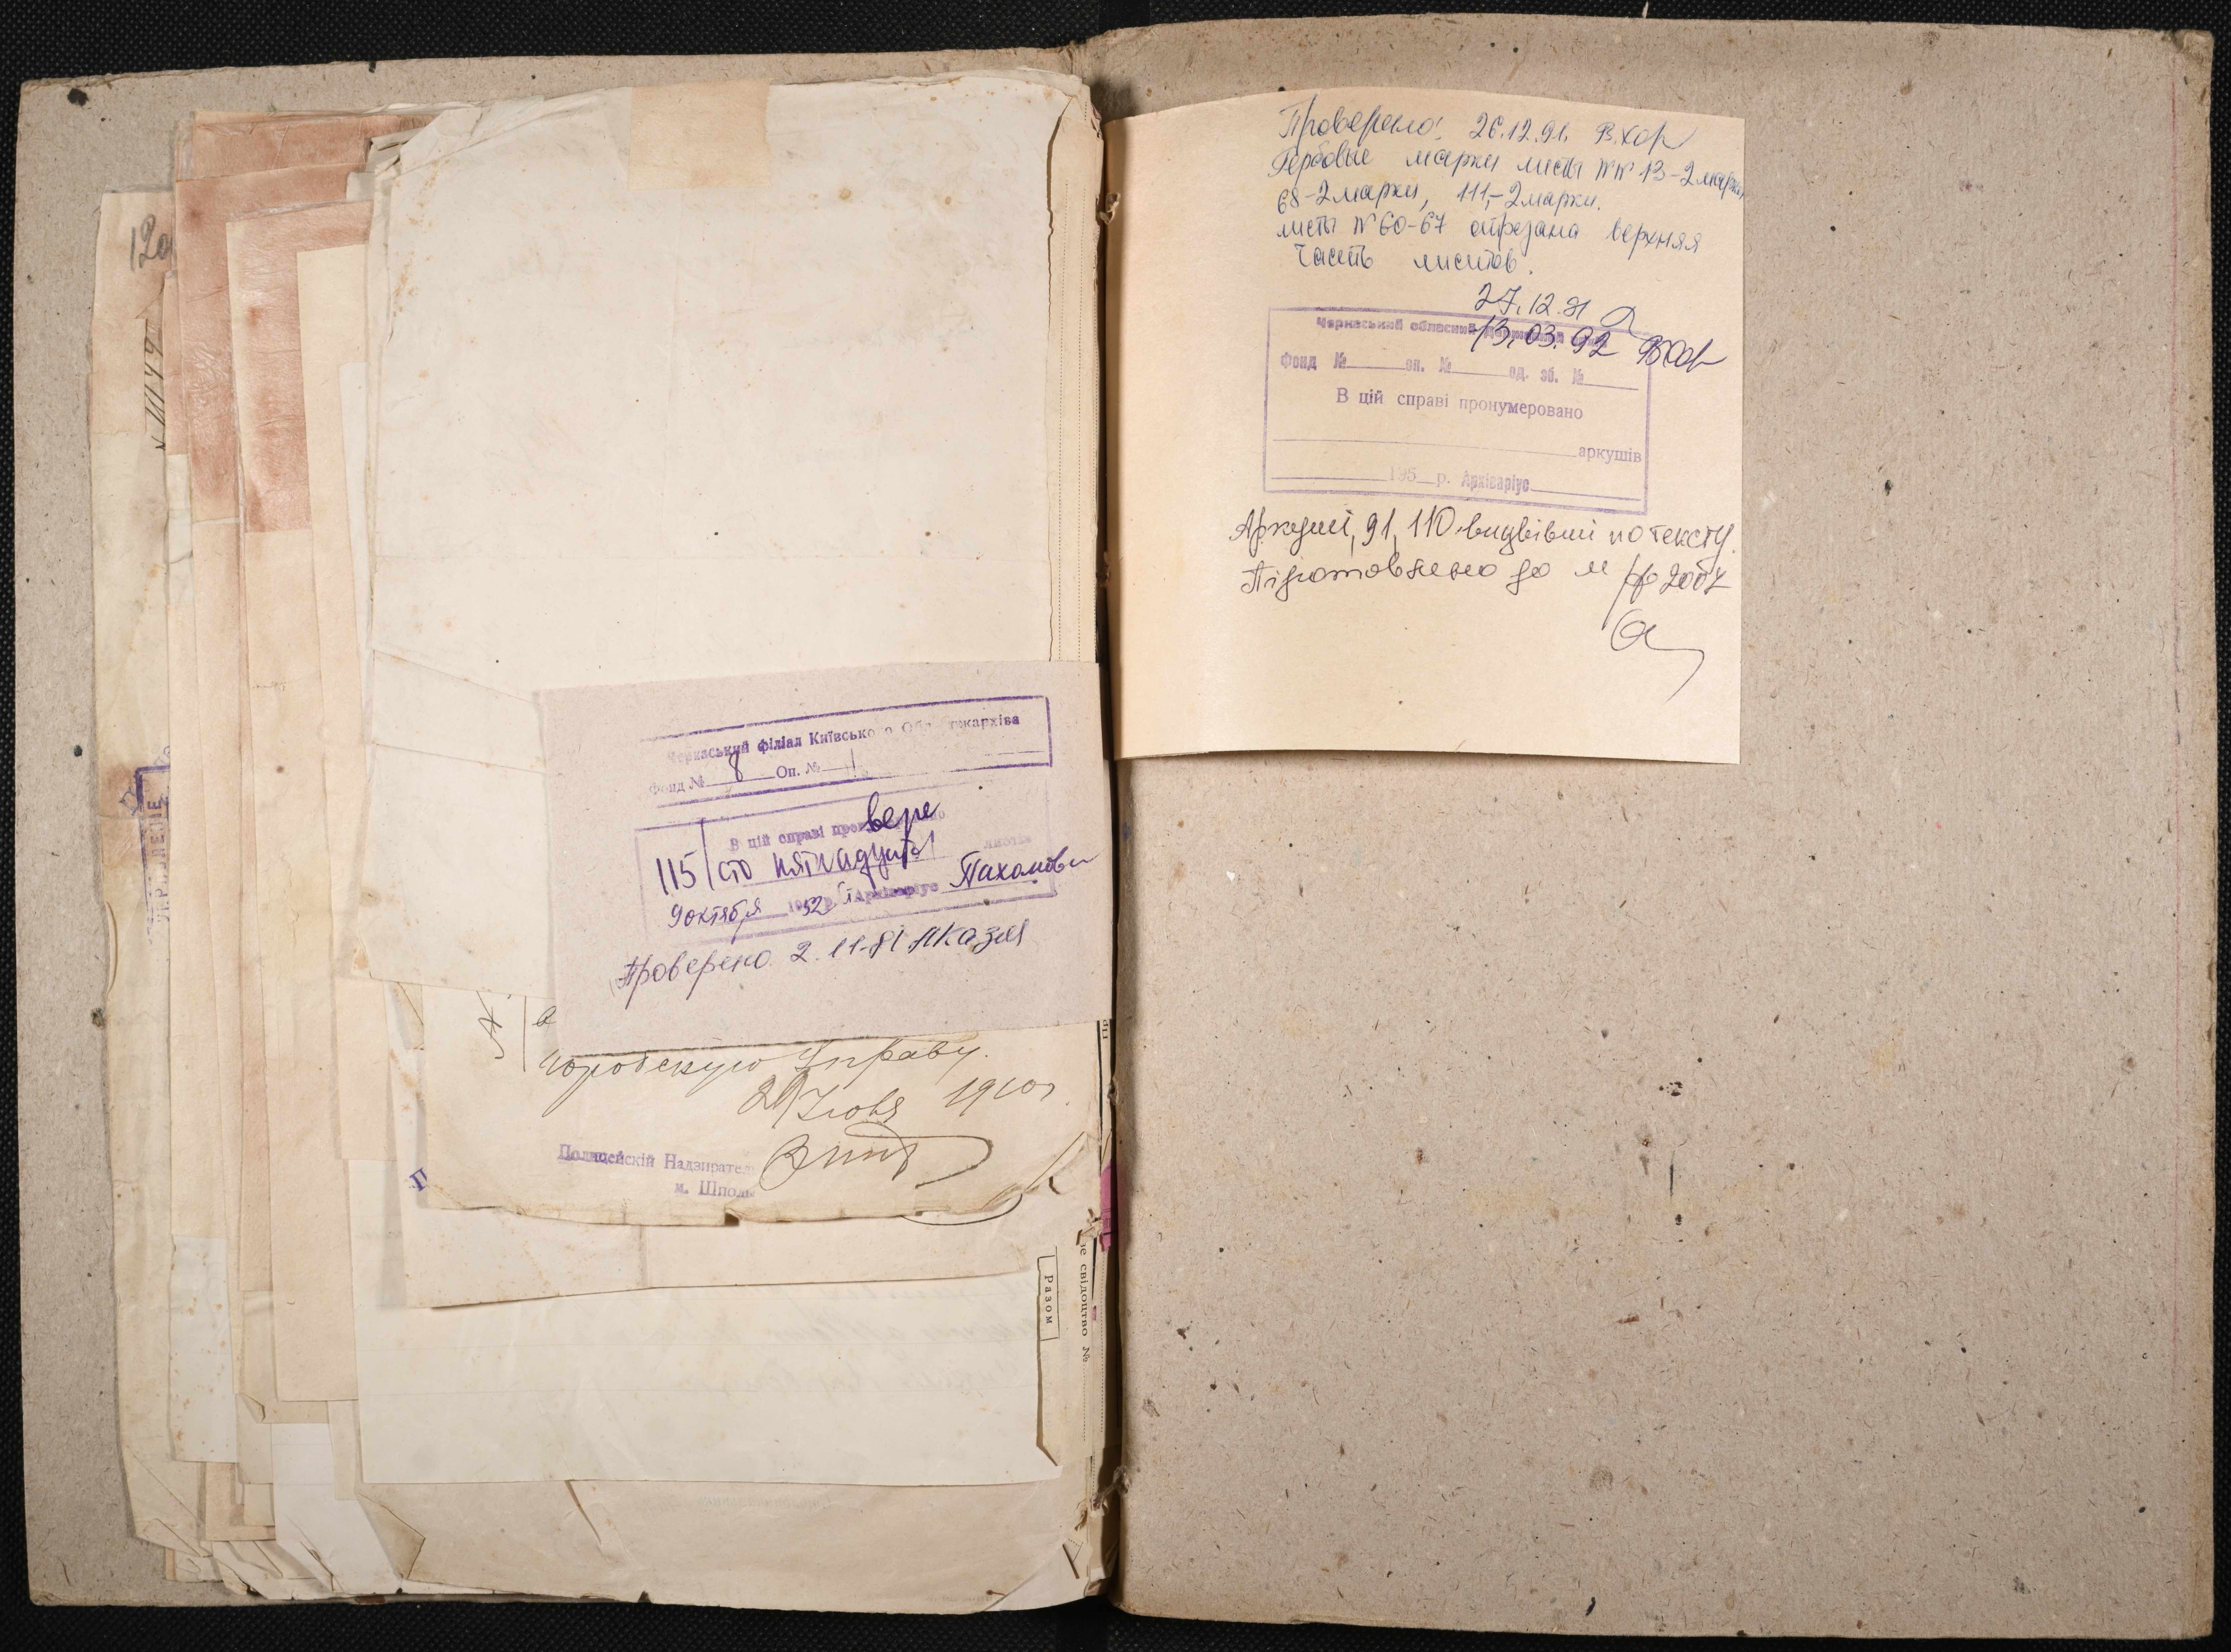 Черкаський філіал Київсько
Фонд № 8 Оп. № 1
вере
В цій справі
115 / сто пятнадцать
9 октября 52 г. Архіваріус Пахомов
Проверено 2.11-81
городскую Управу.
1910
Полицейскій Надзирател
м. Шпол
Разом
свідоцтво №
Проверено! 26.12.91. В.Хор
Гербовые марки листы №№ 13-2марки
68-2марки, 111,-2марки.
листы №60-67 отрезана верхняя
часть листов.
27.12.91
Черкаський обласний
13.03.92 ВХор
Фонд № оп. № од. зб. №
В цій справі пронумеровано
аркушів
195 р. Архіваріус
Аркуші, 91, 110 вицвівші по тексту.
Підготовлено до м/ф 2007